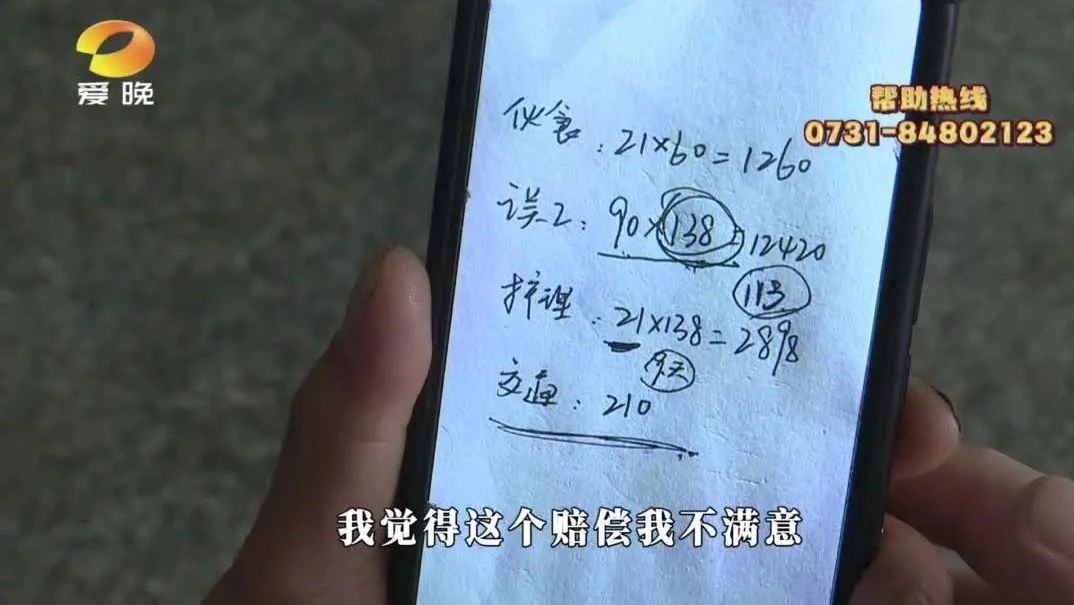 爱晚
帮助热线
0731-84802123
伙食:21×60=1260
误工:90×138=12420
113
护理:21×138=2898
天
交通:210
我觉得这个赔偿我不满意